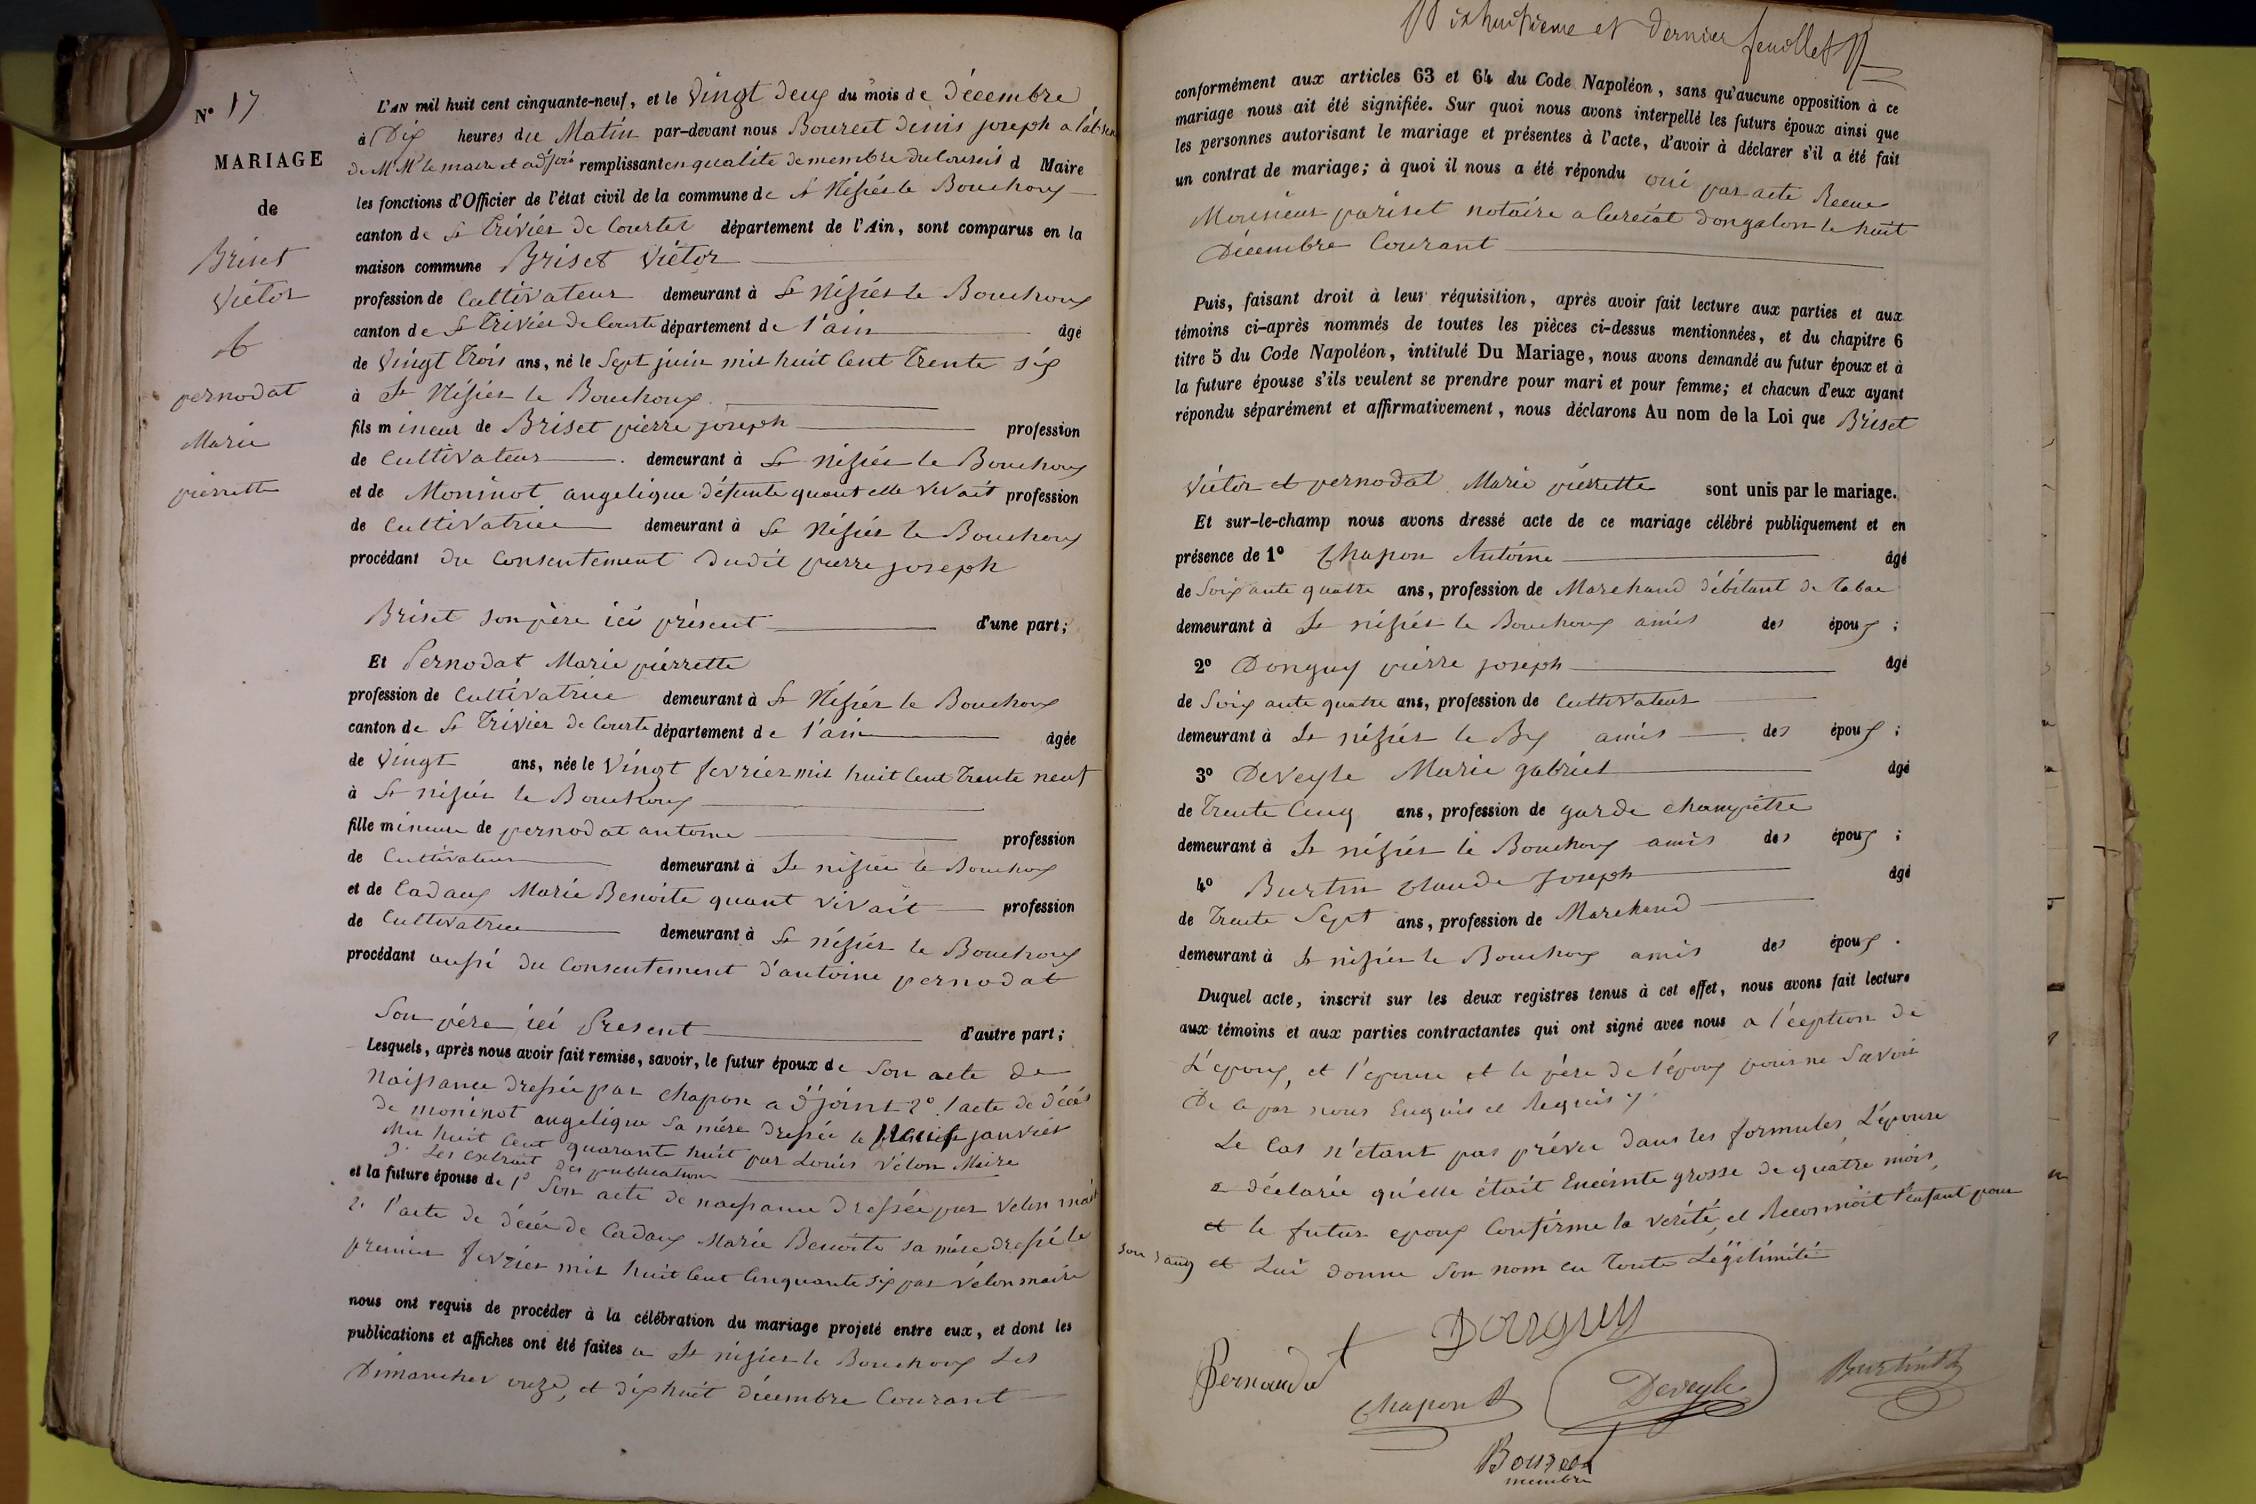 N° 17
MARIAGE
de
Briset
Victor
&
pernodat
Marie
pierrette
L'AN mil huit cent cinquante-neuf, et le Vingt deux du mois de décembre
à Dix heures du Matin par-devant nous Bourcet denis joseph a l'absen
de MM le maire et adjoint remplissant en qualité de membre du Conseil d Maire
les fonctions d'Officier de l'état civil de la commune de St Nisiés le Bouchoux
canton de St Triviér de Courtes département de l'Ain, sont comparus en la
maison commune Briset Victor
profession de Cultivateur demeurant à St Nisiés le Bouchoux
canton de St Triviér de Courte département de l'ain âgé
de Vingt Trois ans, né le Sept juin mil huit Cent Trente six
à St Nisiés le Bouchoux
fils mineur de Briset pierre joseph profession
de Cultivateur demeurant à St Nisiés le Bouchoux
et de Moninot angelique défunte quant elle vivait profession
de Cultivatrice demeurant à St Nisiés le Bouchoux
procédant du Consentement dudit pierre joseph
Briset son père ici présent d'une part;
Et Pernodat Marie pierrette
profession de Cultivatrice demeurant à St Nisiés le Bouchoux
canton de St Triviér de Courte département de l'ain âgée
de Vingt ans, née le Vingt fevrier mil huit Cent Trente neuf
à St nisiés le Bouchoux
fille mineure de pernodat antoine profession
de Cultivateur demeurant à St nisiés le Bouchoux
et de Cadaux Marie Benoite quant vivait profession
de Cultivatrice demeurant à St nisiés le Bouchoux
procédant aussi du Consentement d'antoine pernodat
Son père ici Présent d'autre part;
Lesquels, après nous avoir fait remise, savoir, le futur époux de Son acte de
Naissance dressée par chapon adjoint 2° l'acte de décés
de moninot angelique sa mére dressée le neuf janvier
Mil huit Cent quarant huit par Louis Vélon Maire
3° Les extrait des publication
et la future épouse de 1° Son acte de naissance dressée par Velon mair
2° l'acte de décés de Cadaux Marie Benoite sa mére dressé le
premier fevrier mil huit Cent Cinquante six par Vélon maire
nous ont requis de procéder à la célébration du mariage projeté entre eux, et dont les
publications et affiches ont été faites a St nisiés le Bouchoux Les
Dimanches onze, et dixhuit décembre Courant
Dixhuitieme et Dernier feuillet
conformément aux articles 63 et 64 du Code Napoléon, sans qu'aucune opposition à ce
mariage nous ait été signifiée. Sur quoi nous avons interpellé les futurs époux ainsi que
les personnes autorisant le mariage et présentes à l'acte, d'avoir à déclarer s'il a été fait
un contrat de mariage; à quoi il nous a été répondu oui par acte Recue
Monsieur pariset notaire a Curciat dongalon le huit
Décembre Courant
Puis, faisant droit à leur réquisition, après avoir fait lecture aux parties et aux
témoins ci-après nommés de toutes les pièces ci-dessus mentionnées, et du chapitre 6
titre 5 du Code Napoléon, intitulé Du Mariage, nous avons demandé au futur époux et à
la future épouse s'ils veulent se prendre pour mari et pour femme; et chacun d'eux ayant
répondu séparément et affirmativement, nous déclarons Au nom de la Loi que Briset
Victor et pernodat Marie piérrette sont unis par le mariage.
Et sur-le-champ nous avons dressé acte de ce mariage célébré publiquement et en
présence de 1° Chapon Antoine âgé
de Soixante quatre ans, profession de Marchand débitant de Tabac
demeurant à St nisiés le Bouchoux amis des époux;
2° Donguy piérre joseph âgé
de Soixante quatre ans, profession de Cultivateur
demeurant à St nisiés le Bx amis des époux;
3° Deveyle Marie gabriel âgé
de Trente Cinq ans, profession de garde champétre
demeurant à St nisiés le Bouchoux amis des époux;
4° Burtin Claude Joseph âgé
de Trente Sept ans, profession de Marchand
demeurant à St nisiés le Bouchoux amis des époux.
Duquel acte, inscrit sur les deux registres tenus à cet effet, nous avons fait lecture
aux témoins et aux parties contractantes qui ont signé avec nous a l'éxeption de
L'époux, et l'epouse et le pére de l'époux pour ne Savoir
De ce par nous Enquis et Requis
Le Cas n'étant pas prévu dans les formules, L'épouse
a déclarée qu'elle était Enceinte grosse de quatre mois,
et le futur epoux Confirme la verité, et Reconnoit l'enfant pour
son sang et Lui donne Son nom en Toute Légitimité
Donguy
Pernaudat
Chapon
Deveyle
Burtin
Bourcet
membre